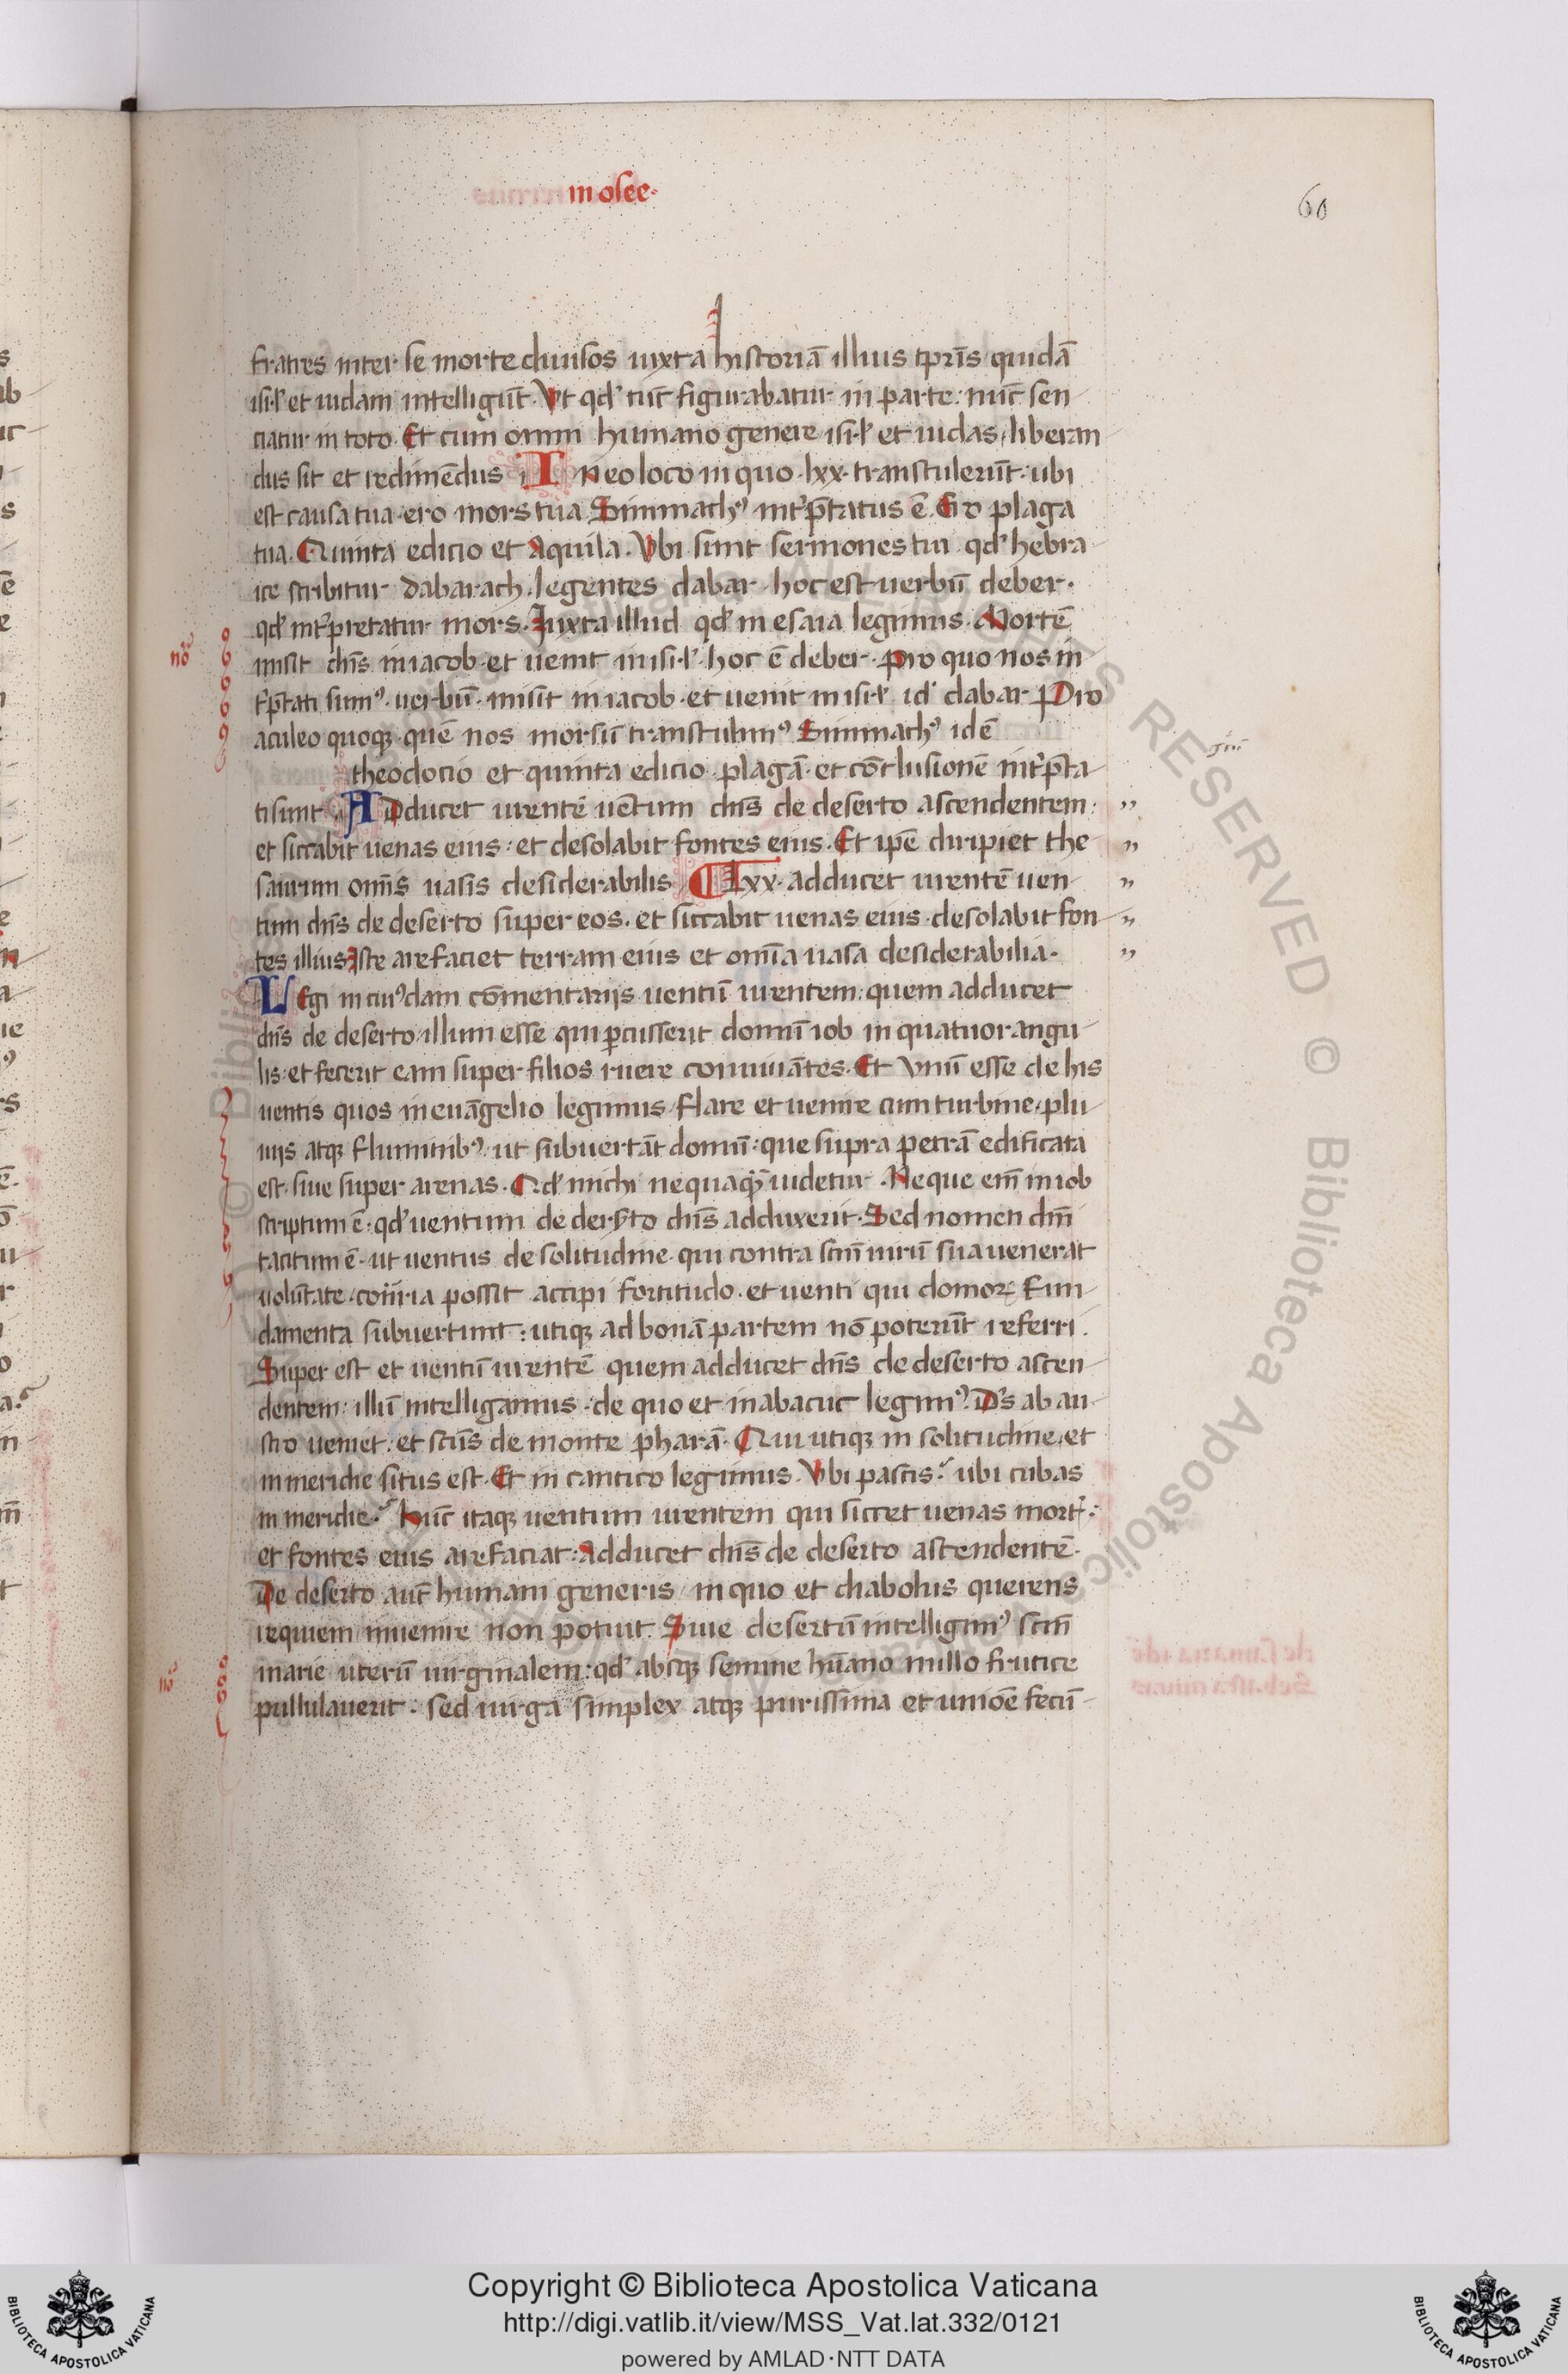 in osee·
60
fratres inter se morte diuisos iuxta historiā illius tp̄ris quidā
isr̄l et iudam intelligūt. Vt qd̓ tūc figurabatur in parte: nūc sen
ciatur in toto. Et cum omni humano genere isr̄l et iudas liberan
dus sit et redimēdus. In eo loco in quo ·lxx· transtulerūt: ubi
est causa tua· ero mors tua. Simmachꝰ int̓p̄tatus ē. Ero plaga
tua. Quinta edicio et Aquila. Vbi sunt sermones tui· qd̓ hebra
ice scribitur dabarach· legentes dabar· hoc est uerbū deber·
qd̓ int̓pretatur mors. Iuxta illud qd̓ in esaia legimus. Mortē
misit dn̄s in iacob· et uenit in isr̄l· hoc ē deber· pro quo nos in
t̓p̄tati sumꝰ· uerbū· misit in iacob· et uenit in isr̄l· id̓ dabar· Pro
aculeo quoqꝫ· quē nos morsū transtulimꝰ Simmachꝰ idē
theodocio et quinta edicio· plagā· et cōclusionē int̓p̄ta
ti sunt. ADducet urentē uētum dn̄s de deserto ascendentem:
et siccabit uenas eius: et desolabit fontes eius. Et ip̄e diripiet the
saurum om̄is uasis desiderabilis. Lxx· adducet urentē uen
tum dn̄s de deserto super eos· et siccabit uenas eius· desolabit fon
tes illius Iste arefaciet terram eius et om̄ia uasa desiderabilia·
LEgi in cuiꝰdam cōmentarijs uentū urentem: quem adducet
dn̄s de deserto· illum esse qui ꝑcusserit domū iob in quatuor angu
lis: et fecerit eam super filios ruere conuiuātes. Et vnū esse de his
uentis quos in euāgelio legimus flare et uenire cum turbine· plu
uijs atqꝫ fluminibꝰ: ut subuertāt domū: que supra petrā edificata
est· siue super arenas. Qd̓ michi nequaqꝫ̄ uidetur. Neque em̄ in iob
scriptum ē: qd̓ uentum de derẏto dn̄s adduxerit. Sed nomen dn̄i
tacitum ē· ut uentus de solitudine· qui contra sc̄m uirū sua uenerat
volūtate· cōtr̄ria possit accipi fortitudo· et uenti qui domoꝝ fun
damenta subuertunt: utiqꝫ ad bonā partem nō poterūt referri.
Super est et uentū urentē quem adducet dn̄s de deserto ascen
dentem: illū intelligamus: de quo et in abacuc legimꝰ. D̄s ab au
stro ueniet: et sc̄us de monte pharā. Qui utiqꝫ in solitudine· et
in meridie situs est. Et in cantico legimus. Vbi pascis? ubi cubas
in meridie? hūc itaqꝫ uentum urentem qui siccet uenas mort̓:
et fontes eius arefaciat: Adducet dn̄s de deserto ascendentē.
De deserto aut̄ humani generis in quo et diabolus querens
requiem inuenire non potuit. Siue desertū intelligimꝰ sc̄m
marie uterū uirginalem: qd̓ absqꝫ semine hūano nullo frutice
pullulauerit: sed uirga simplex atqꝫ purissima et unioē fecū
no̓
no̓
© Biblioteca Apostolica Vaticana
ALL RIGHTS RESERVED
© Biblioteca Apostolica Vaticana
Copyright © Biblioteca Apostolica Vaticana
http://digi.vatlib.it/view/MSS_Vat.lat.332/0121
powered by AMLAD·NTT DATA
BIBLIOTECA APOSTOLICA VATICANA
BIBLIOTECA APOSTOLICA VATICANA